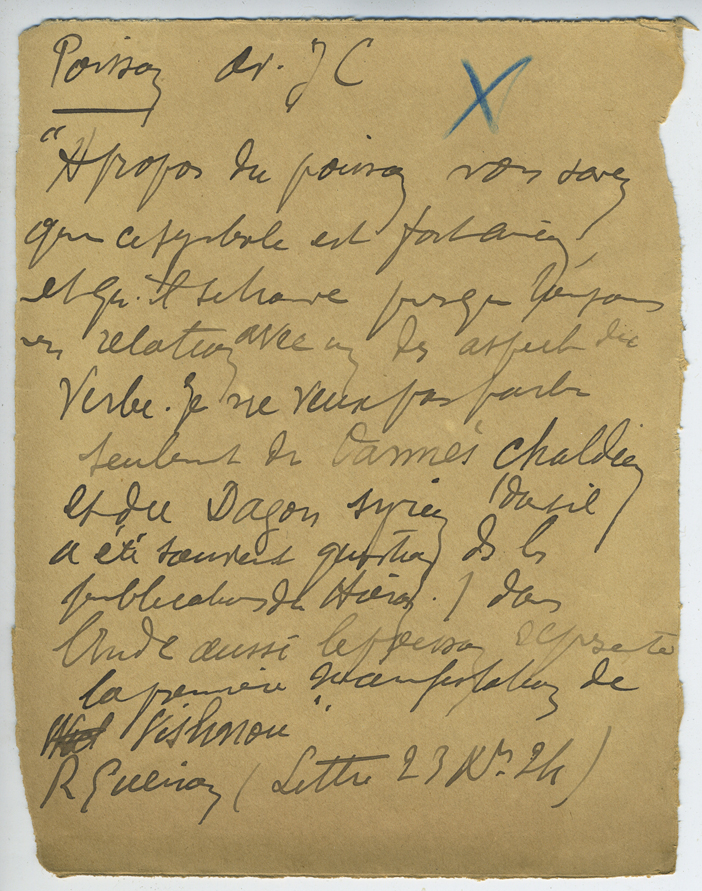 Poisson av. J C
X
"A propos du poisson vous savez
que ce symbole est fort ancien
et qu'il se trouve presque toujours
en relation avec un des aspects du
Verbe. Je ne veux pas parler
seulement de l'Oannès chaldéen
et du Dagon syrien (dont il
a été souvent question ds les
publications du Hiéron.) dans
l'Inde aussi le poisson représente
la première manifestation de
Vishnou".
R Guénon (Lettre 23 Nov. 24)